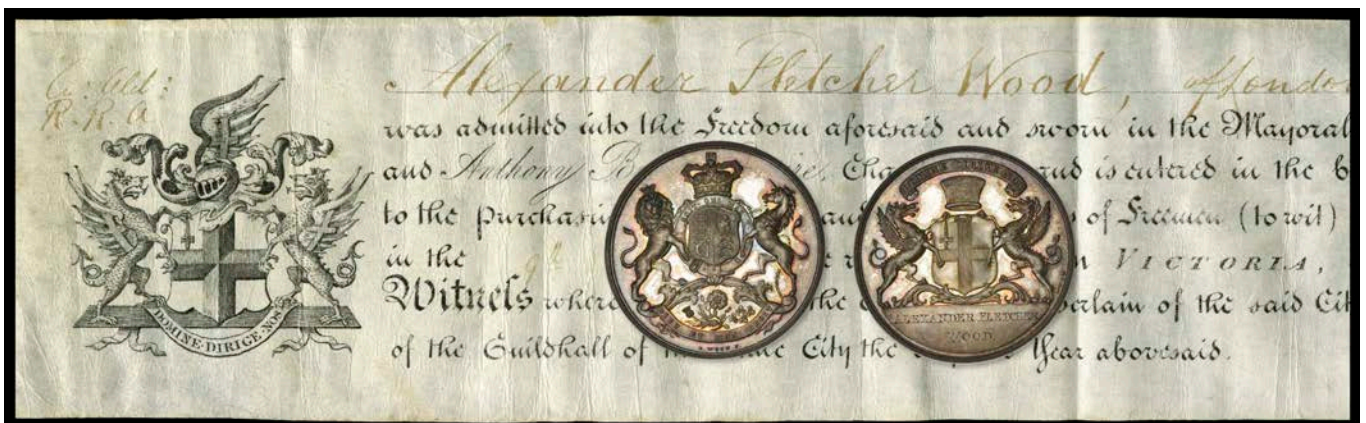 Alexander Fletcher Wood, of London
R.R.A
was admitted into the Freedom aforesaid and sworn in the Mayoral
and Anthony B Cha and is entered in the B
to the purchasi and s of Freemen (to wit)
in the VICTORIA,
Witness where the berlain of the said Cit
of the Guildhall of the same City the Year abovesaid.
DOMINE·DIRIGE·NOS
ALEXANDER FLETCHER
WOOD